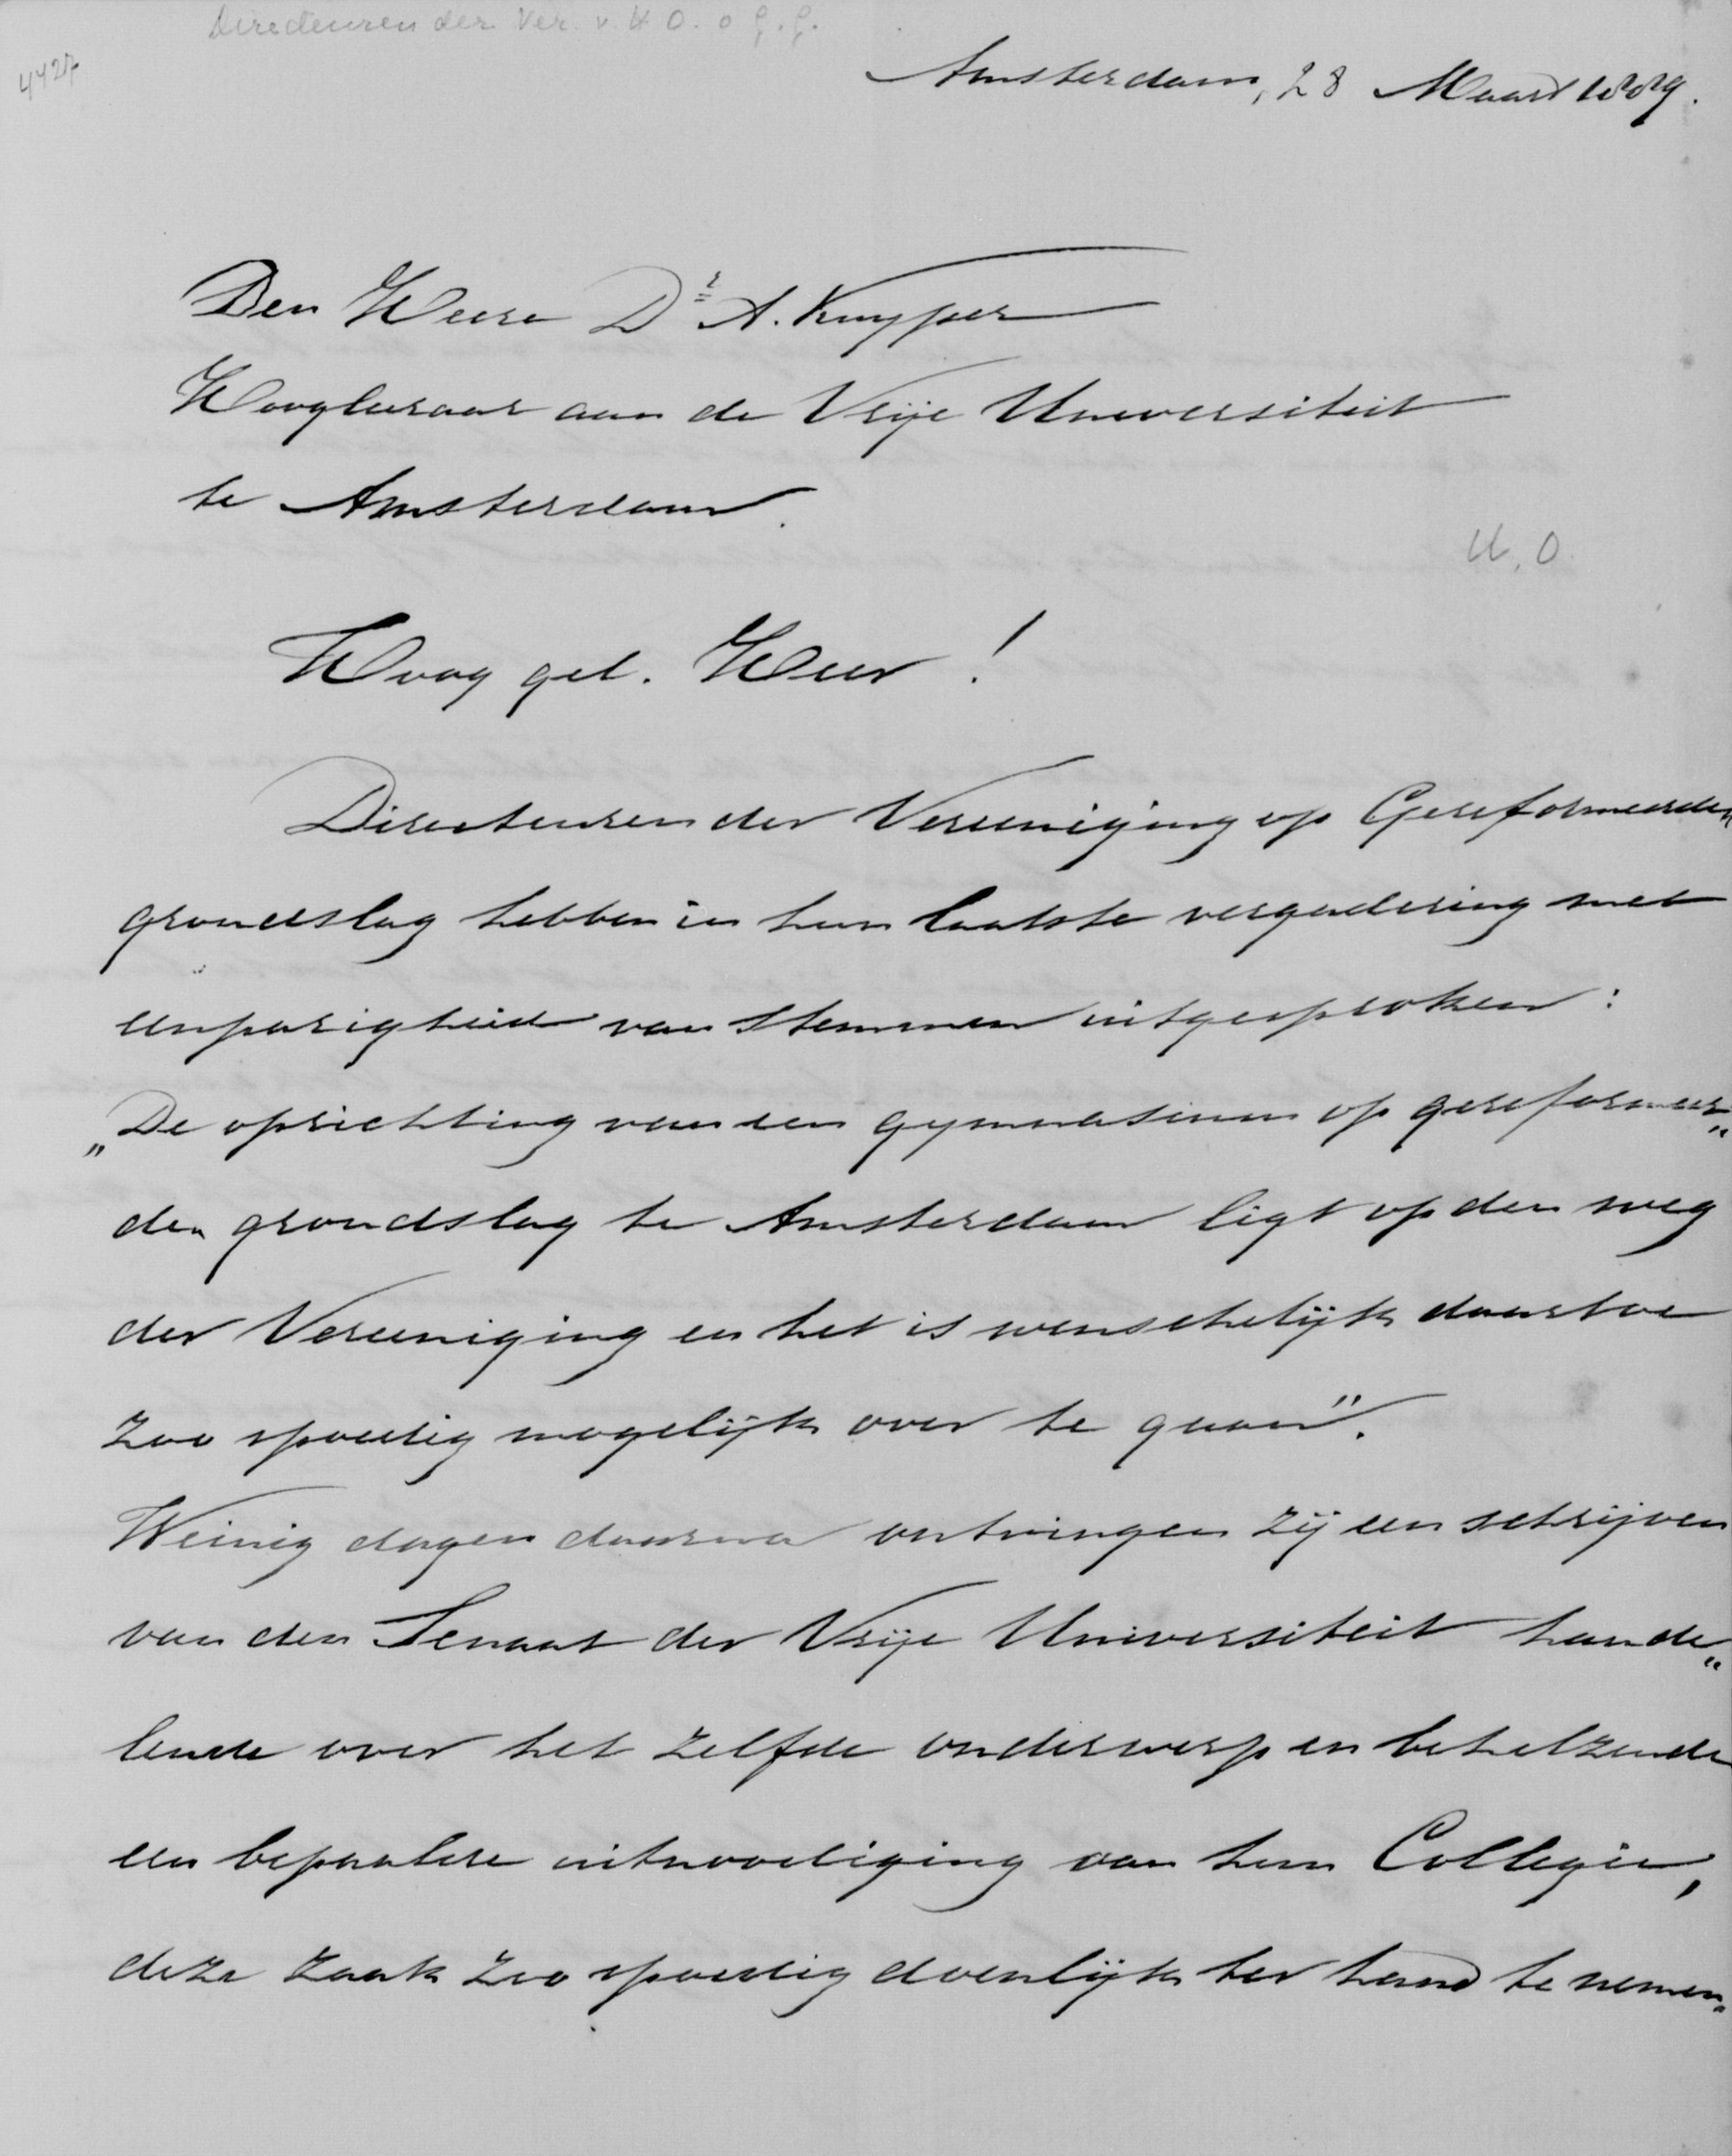 Directeuren der Ver. v. H. O. o g. g.
4427
Amsterdam, 28 Maart 1889.
Den Heere Dr A. Kuyper
Hoogleeraar aan de Vrije Universiteit
te Amsterdam.
U. O.
Hoog gel. Heer!
Directeuren der Vereeniging op Gereformeerden
grondslag hebben in hun laatste vergadering met
eenparigheid van stemmen uitgesproken:
„De oprichting van een gymnasium op gereformeer„
den grondslag te Amsterdam ligt op den weg
der Vereeniging en het is wenschelijk daartoe
zoo spoedig mogelijk over te gaan".
Weinig dagen daarna ontvingen zij een schrijven
van den Senaat der Vrije Universiteit hande„
lende over het zelfde onderwerp en behelzende
een bepaalde uitnoodiging van hun Collegie,
deze zaak zoo spoedig doenlijk ter hand te nemen.